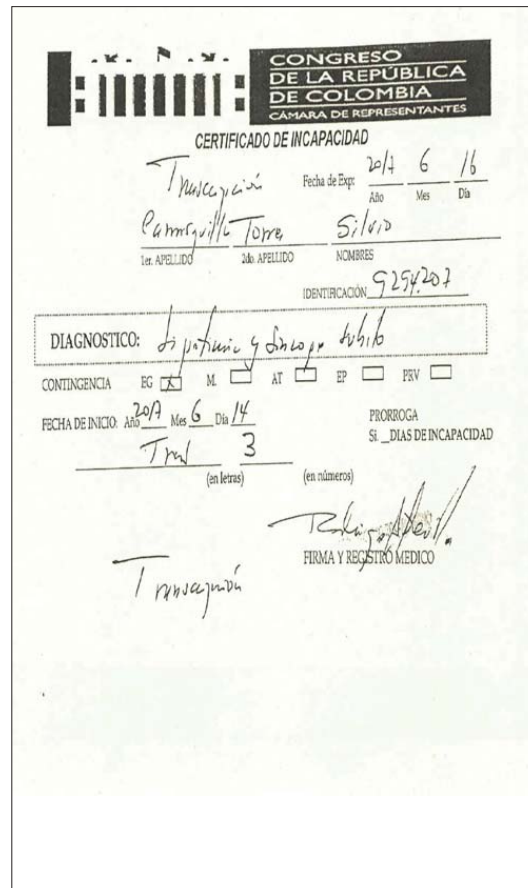 CONGRESO
DE LA REPÚBLICA
DE COLOMBIA
CÁMARA DE REPRESENTANTES
CERTIFICADO DE INCAPACIDAD
Transcripción
Fecha de Exp: 2017 6 16
Año Mes Día
Torres Silvio
1er. APELLIDO 2do. APELLIDO NOMBRES
IDENTIFICACIÓN 9254.207
DIAGNOSTICO: y Sincope subito
CONTINGENCIA EG X M. AT EP PRV
FECHA DE INICIO: Año 2017 Mes 6 Día 14
PRORROGA
Si. _DIAS DE INCAPACIDAD
Tres 3
(en letras) (en números)
FIRMA Y REGISTRO MEDICO
Transcripción